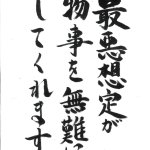 最悪想定が
物事を無難に
してくれます